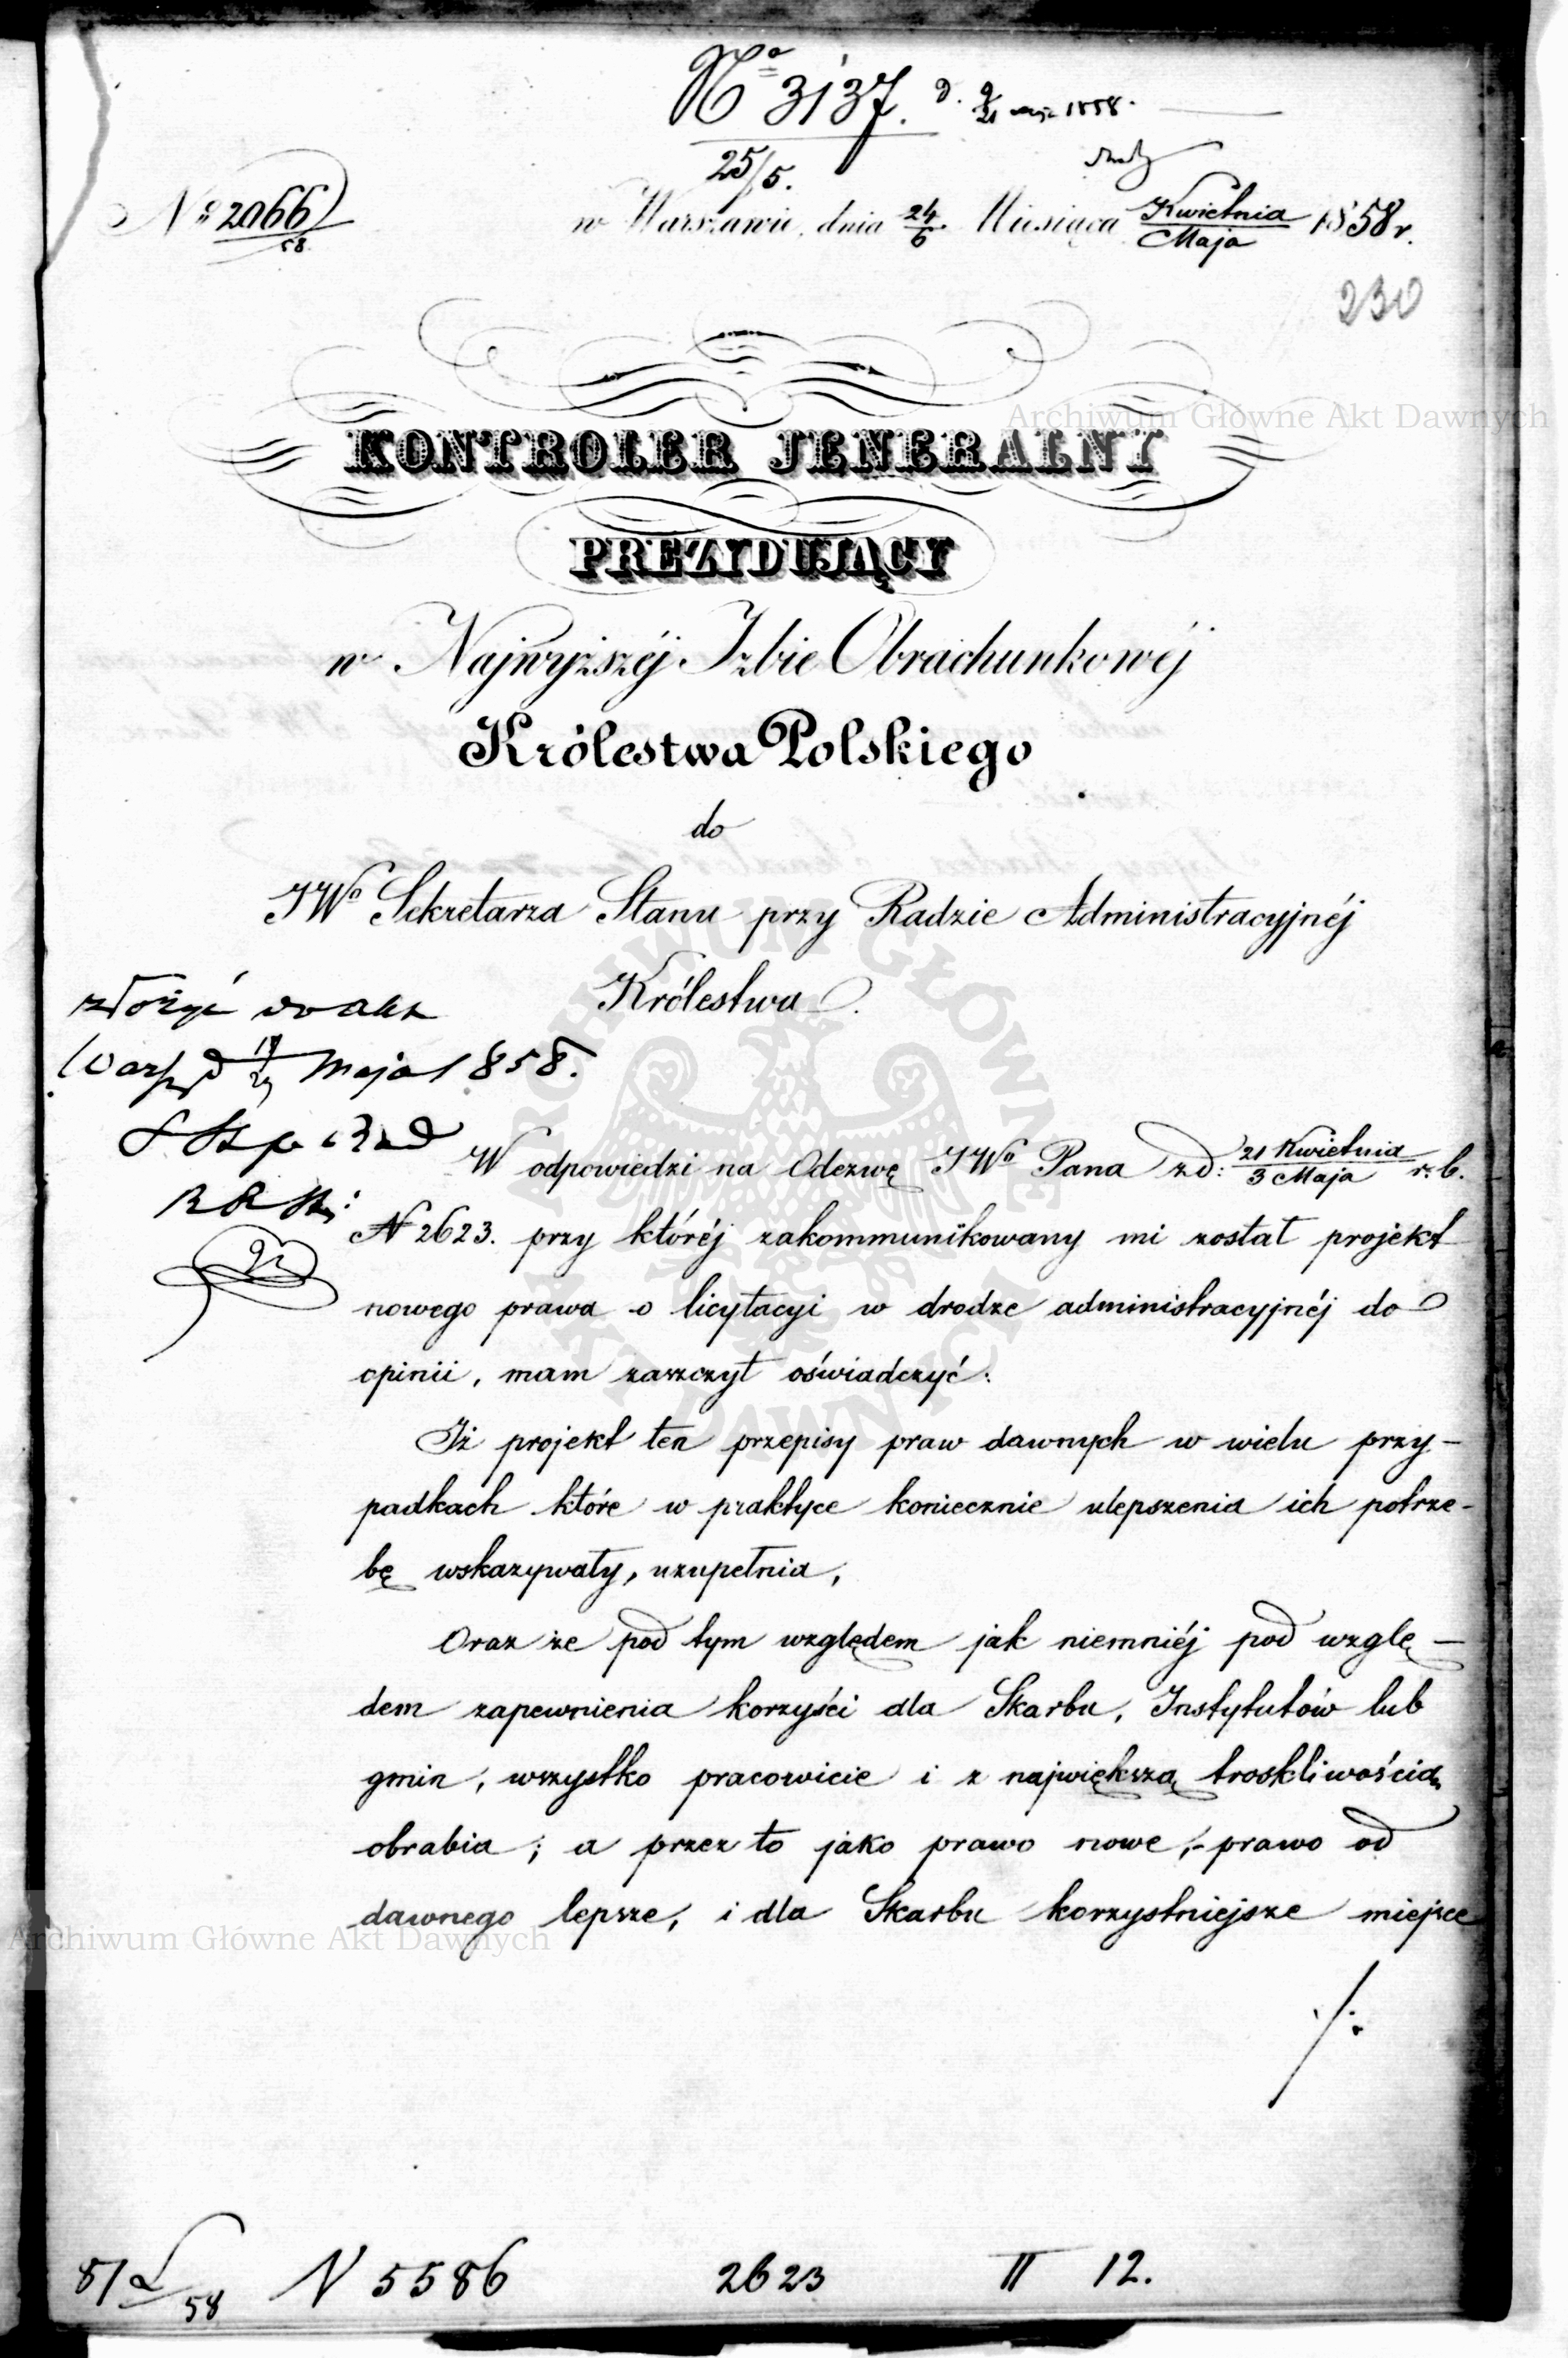 No 3137. d. 9/21 maja 1858.
25/5.
No 2066/58.
w Warszawie, dnia 24/6 Miesiąca Kwietnia/Maja 1858 r.
230
Archiwum Główne Akt Dawnych
KONTROLER JENERALNY
PREZYDUJĄCY
w Najwyższéj Izbie Obrachunkowéj
Królestwa Polskiego
do
JWo Sekretarza Stanu przy Radzie Administracyjnéj
Królestwa.
złożyć do akt
Warsz d Maja 1858.
W odpowiedzi na Odezwę JWo Pana z d: 21 Kwietnia/3 Maja r. b.
N 2623. przy któréj zakommunikowany mi został projekt
nowego prawa o licytacyi w drodze administracyjnéj do
opinii, mam zaszczyt oświadczyć:
Iż projekt ten przepisy praw dawnych w wielu przy-
padkach które w praktyce koniecznie ulepszenia ich potrze-
bę wskazywały, uzupełnia,
Oraz że pod tym względem jak niemniéj pod wzglę-
dem zapewnienia korzyści dla Skarbu, Instytutów lub
gmin, wszystko pracowicie i z największą troskliwością
obrabia; a przez to jako prawo nowe,- prawo od
dawnego lepsze, i dla Skarbu korzystniejsze miejsce
./.
Archiwum Główne Akt Dawnych
ARCHIWUM GŁÓWNE AKT DAWNYCH
58 N 5586 2623 II 12.